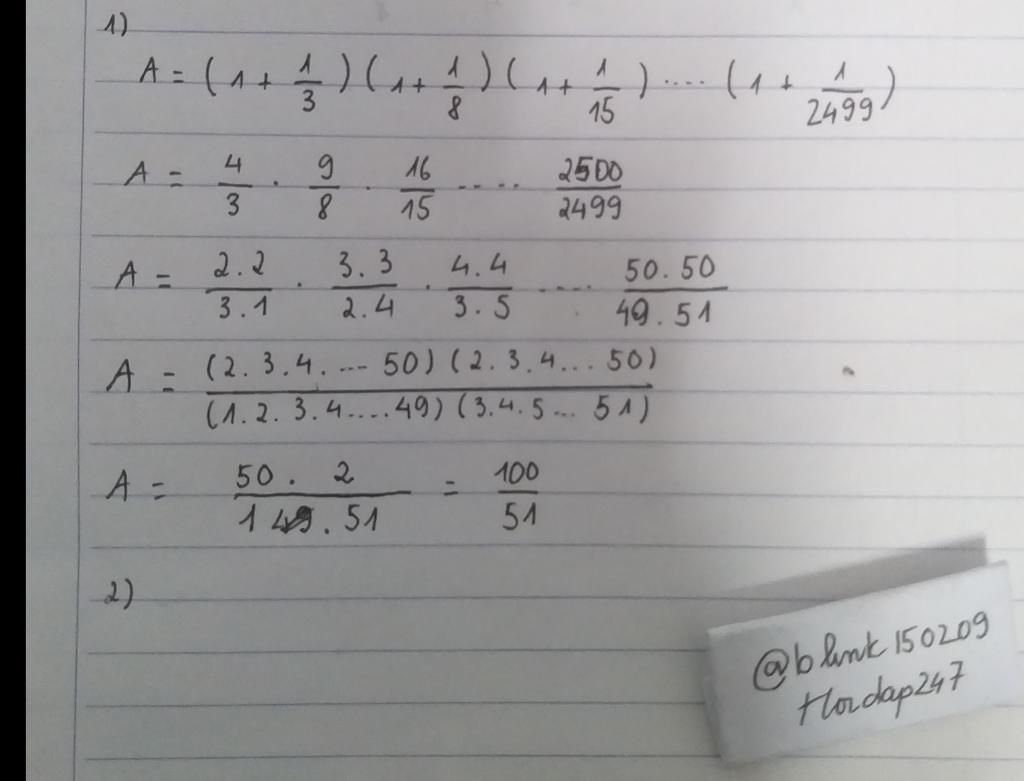 1)
A = (1 + 1/3) (1 + 1/8) (1 + 1/15) .... (1 + 1/2499)
A = 4/3 . 9/8 . 16/15 .... 2500/2499
A = 2.2/3.1 . 3.3/2.4 . 4.4/3.5 .... 50.50/49.51
A = (2.3.4. ... 50) (2.3.4...50) / (1.2.3.4....49) (3.4.5... 51)
A = 50. 2 / 1 . 51 = 100/51
2)
@blink150209
+hoidap247